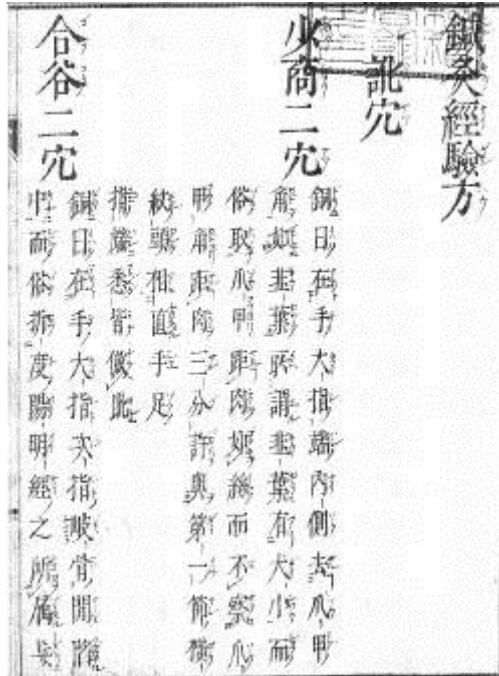 鍼灸經驗方
訛穴
少商二穴
銅曰在手大指端内側去爪甲
角如韭葉所謂韭葉有大小而
俗取爪甲距肉如絲而不察爪
甲角距肉三分許與第一節橫
紋頭相直手足
指端悉皆倣此
合谷二穴
銅曰在手大指次指岐骨間陷
中而俗度陽明經之所屬